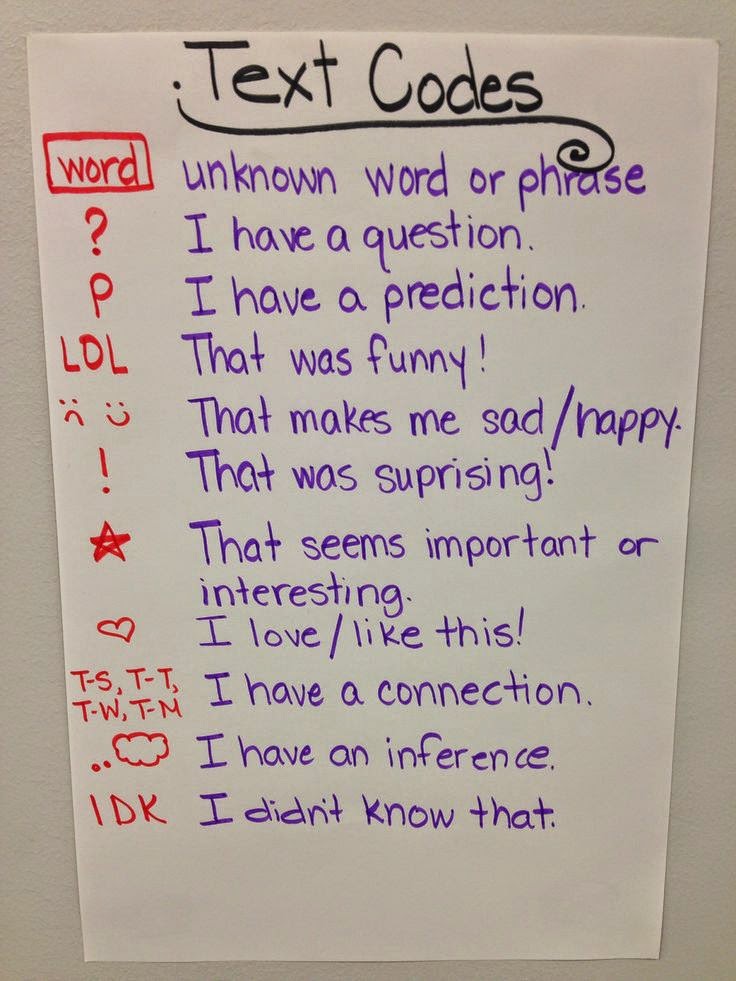 Text Codes
word unknown word or phrase
? I have a question.
P I have a prediction.
LOL That was funny!
:( :) That makes me sad/happy.
! That was suprising!
☆ That seems important or
interesting.
♡ I love/like this!
T-S, T-T,
T-W, T-M I have a connection.
I have an inference.
IDK I didn't know that.